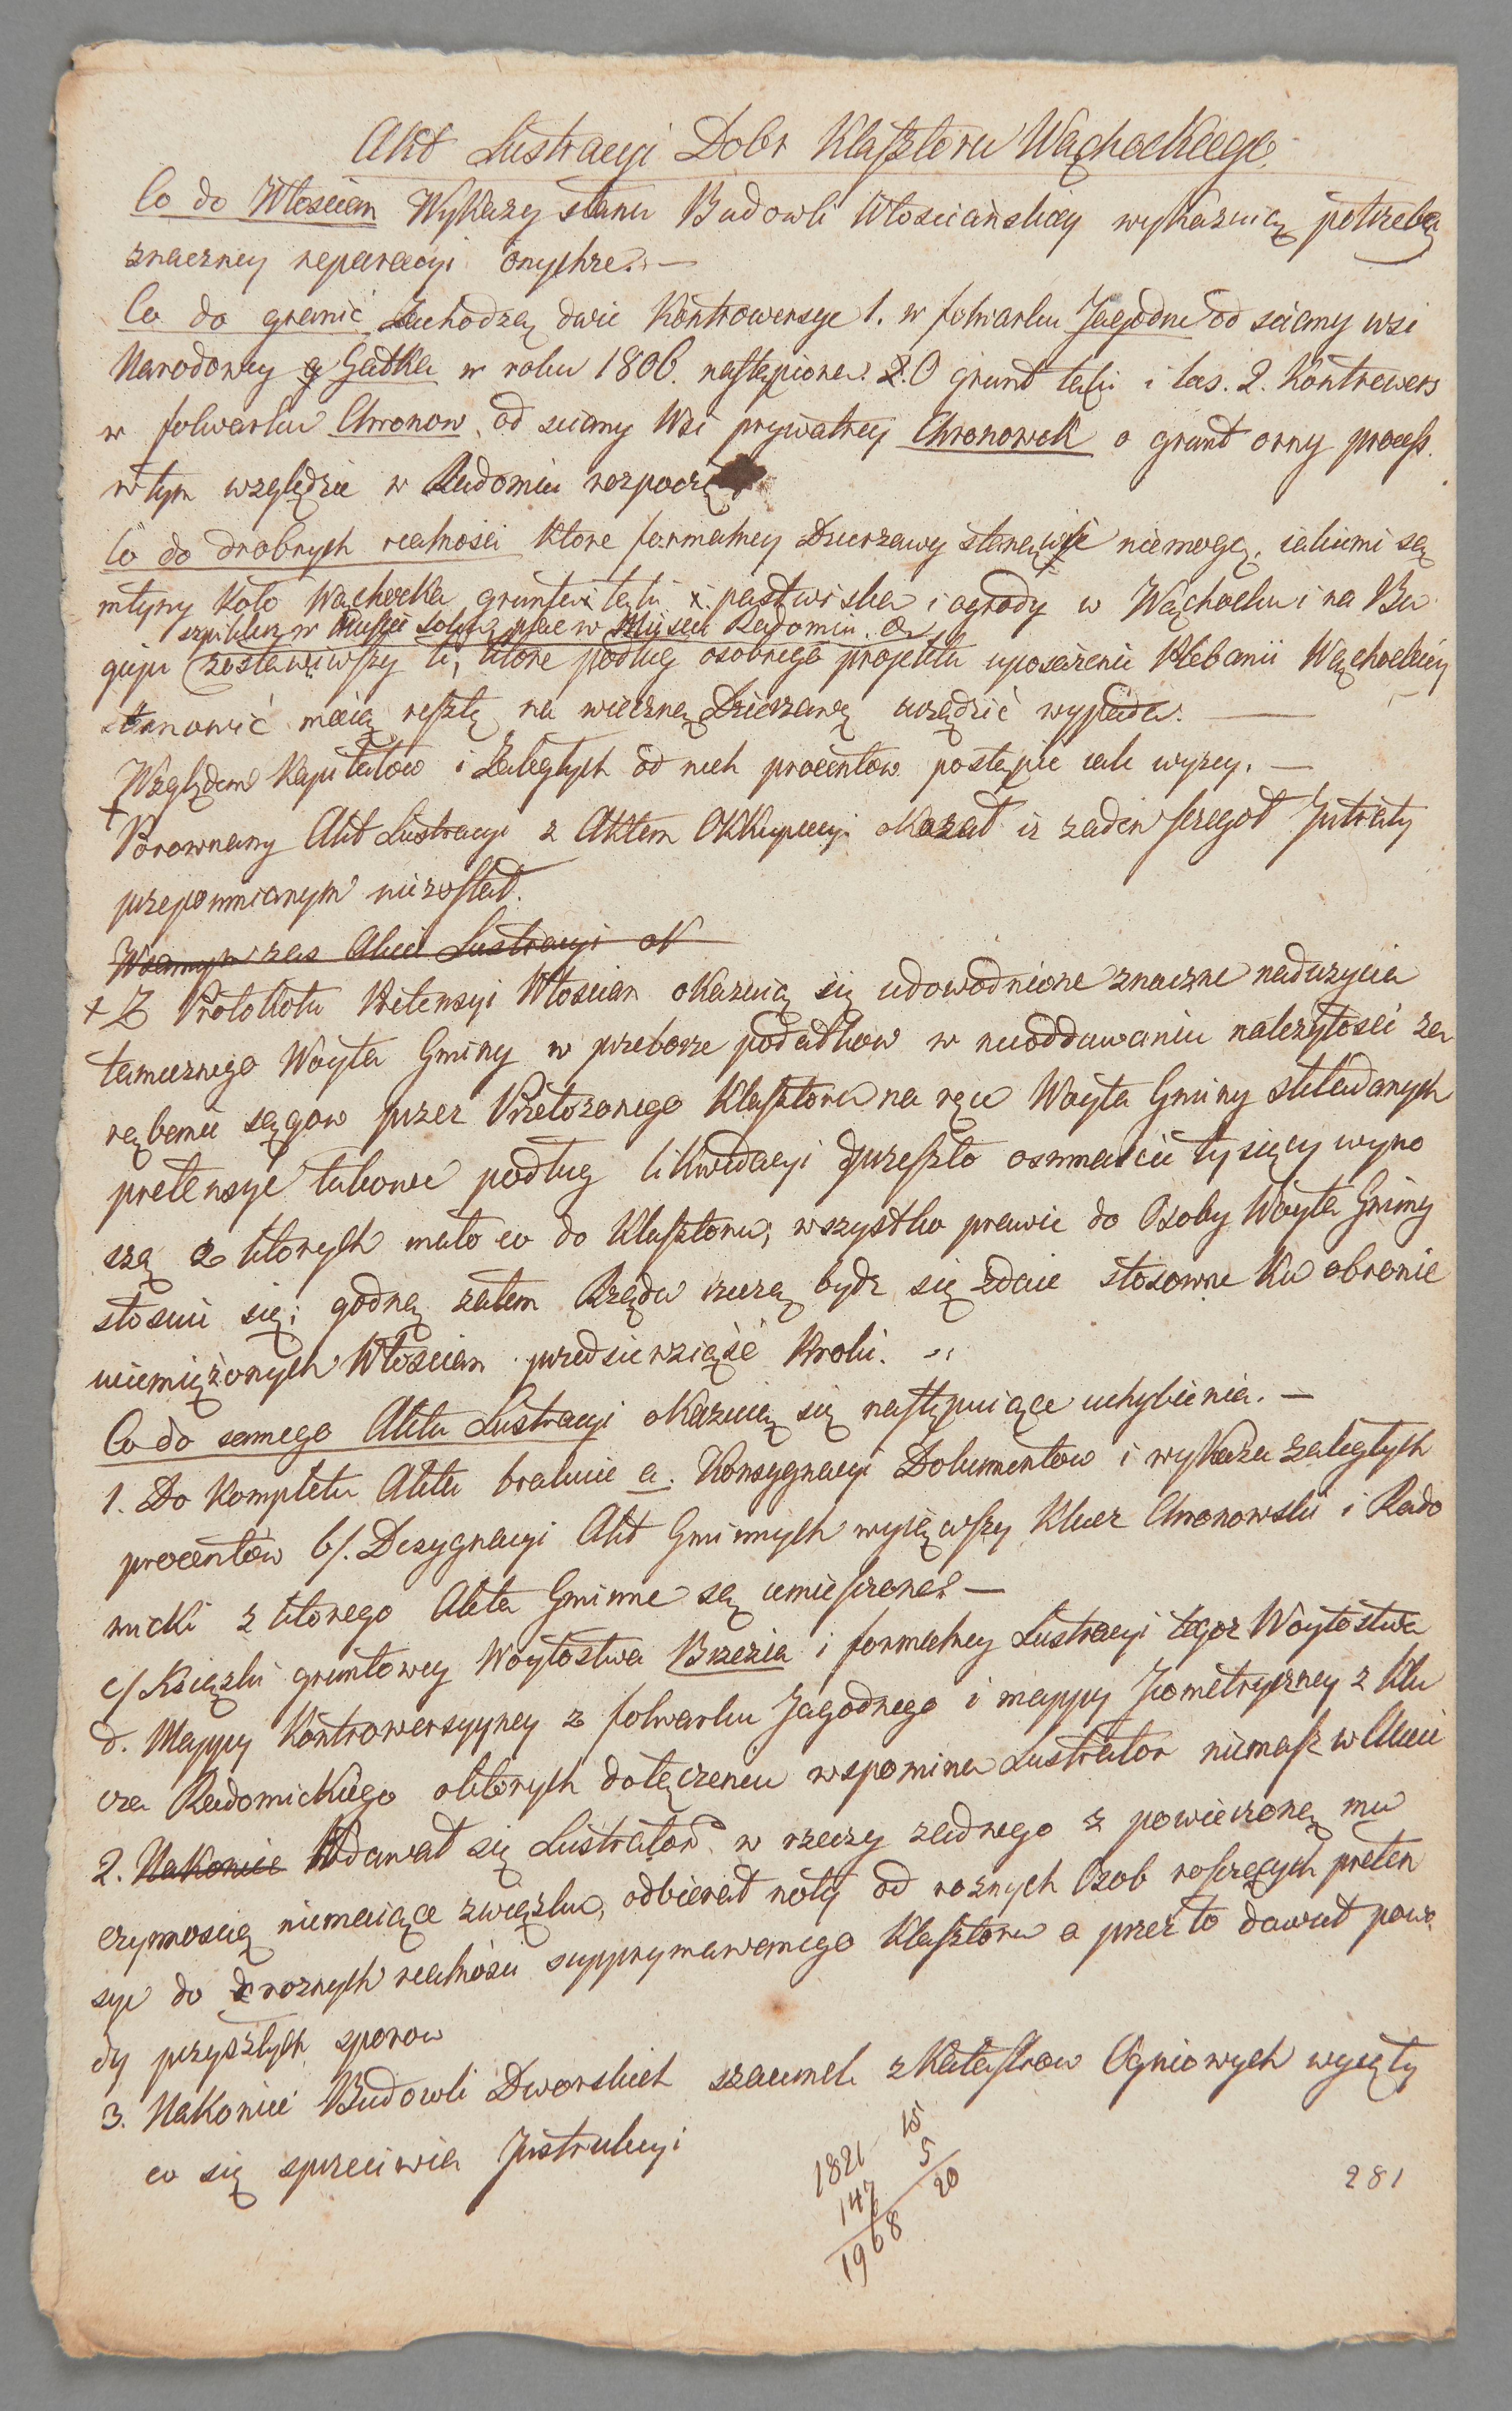 Akt Lustracyi Dobr Klasztoru Wąchockiego.
Co do Włoscian Wykazy stanu Budowli Włosciańskiey wykazuią potrzebę
znaczney reparacyi onychże. —
Co do granic Zachodzą dwie Kontrowersye 1. w folwarku Jagodne od sciany wsi
Narodowey Gadka w roku 1806. nastąpiona. O grunt łąki i las. 2. Kontrowers
w folwarku Chronow od sciany Wsi prywatney Chronowek o grunt orny process.
w tym względzie w Radomiu rozpoczę
Co do drobnych realnosci ktore formalney Dzierzawy stanowić niemogą, iakiemi są
młyny koło Wąchocka grunta łąki i pastwiska i ogrody w Wąchocku i na Bu
szpiklerz w Solcą plac w Miescie Radomiu.
gaju zostawiwszy te, ktore podług osobnego projektu uposażenie Plebanii Wąchockiey
stanowić maią resztę na wieczną Dzierzawę urządzić wypada. —
Względem Kapitałow i Zaległych od nich procentow postąpić iak wyzey. —
+ Porownany Akt Lustracyi z Aktem Okkupacyi okazał iz zaden szczegoł Intraty
przepomnianym niezostał.
W samym zas Akcie Lustracyi ok
+ Z Protokołu Pretensyi Włoscian okazuią się udowodnione znaczne naduzycia
tamecznego Woyta Gminy w przeborze podatkow w nieoddawaniu nalezytosci za
rąbanie sągow przez Przełozonego Klasztoru na ręce Woyta Gminy składanych
pretensye takowe podług likwidacyi przeszło osmnascie tysięcy wyno
szą z ktorych mało co do Klasztoru, wszystko prawie do Osoby Woyta Gminy
stosuie się; godną zatem Rządu rzeczą bydz się zdaie stosowne ku obronie
uciemiężonych Włoscian przedsiewziąść Kroki.
Co do samego Aktu Lustracyi okazuią się następuiące uchybienia. —
1. Do Kompletu Aktu brakuie a. Konsygnacyi Dokumentow i wykazu zaległych
procentów b/. Dezygnacyi Akt Gminnych wyiąwszy Klucz Chronowski i Rado
micki z ktorego Akta Gminne są umieszczone. —
c/ Książki gruntowey Woytostwa Brzezia i formalney Lustracyi tegoz Woytostwa
d. Mappy Kontrowersyyney z folwarku Jagodnego i mappy Jeometryczney z Klu
cza Radomickiego o ktorych dołączeniu wspomina Lustrator niemasz w Akcie
2. Nakoniec Wdawał się Lustrator w rzeczy zadnego z powierzoną mu
czynnoscią niemaiące związku, odbierał noty od roznych Osob roszczących preten
sye do roznych realności supprymawanego Klasztoru a przez to dawał powo
dy przyszłych sporow
3. Nakoniec Budowli Dworskich szacunek z Katastrow Ogniowych wyięty
co się sprzeciwia Instrukcyi
1821
147
1968
15
5
20
281